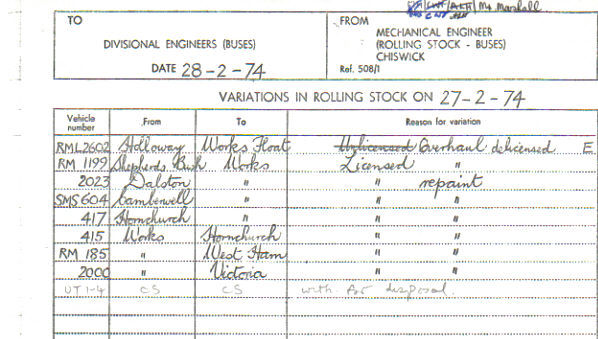 Mr Marshall
TO
DIVISIONAL ENGINEERS (BUSES)
DATE 28-2-74
FROM
MECHANICAL ENGINEER
(ROLLING STOCK - BUSES)
CHISWICK
Ref. 508/1
VARIATIONS IN ROLLING STOCK ON 27-2-74
Vehicle number From To Reason for variation
RML2602 Holloway Works Float Unlicenced Overhaul delicensed E
RM 1199 Shepherds Bush Works Licensed "
2023 Dalston " " repaint
SMS 604 Camberwell " " "
417 Hornchurch " " "
415 Works Hornchurch " "
RM 185 " West Ham " "
2000 " Victoria " "
UT 1-4 CS CS with for disposal.